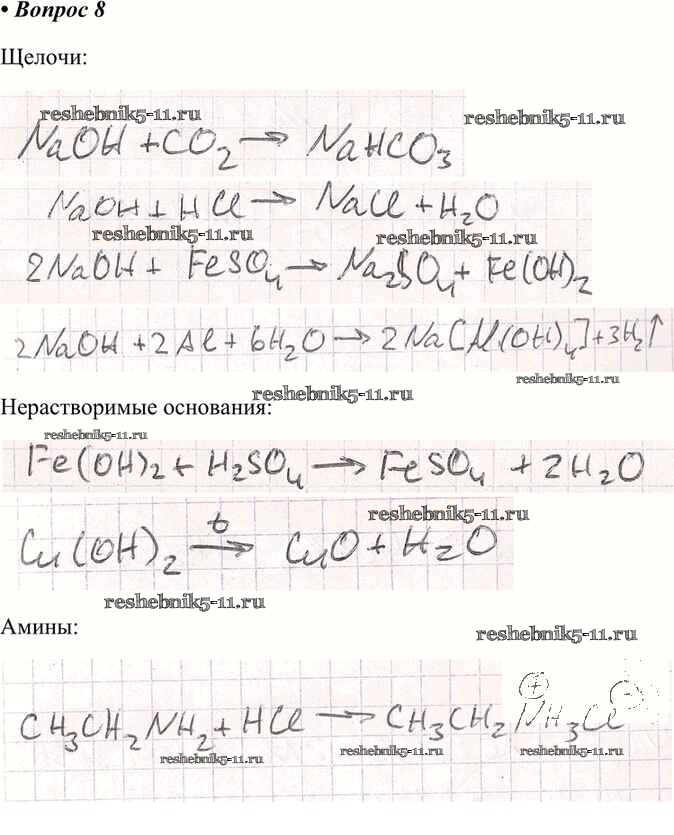 • Вопрос 8
Щелочи:
reshebnik5-11.ru
reshebnik5-11.ru
NaOH + CO₂ → NaHCO₃
NaOH + HCl → NaCl + H₂O
reshebnik5-11.ru
reshebnik5-11.ru
2NaOH + FeSO₄ → Na₂SO₄ + Fe(OH)₂
2NaOH + 2Al + 6H₂O → 2Na[Al(OH)₄] + 3H₂↑
reshebnik5-11.ru
reshebnik5-11.ru
Нерастворимые основания:
reshebnik5-11.ru
Fe(OH)₂ + H₂SO₄ → FeSO₄ + 2H₂O
reshebnik5-11.ru
t
Cu(OH)₂ → CuO + H₂O
reshebnik5-11.ru
Амины:
reshebnik5-11.ru
CH₃CH₂NH₂ + HCl → CH₃CH₂NH₃⊕Cl⊖
reshebnik5-11.ru
reshebnik5-11.ru
reshebnik5-11.ru